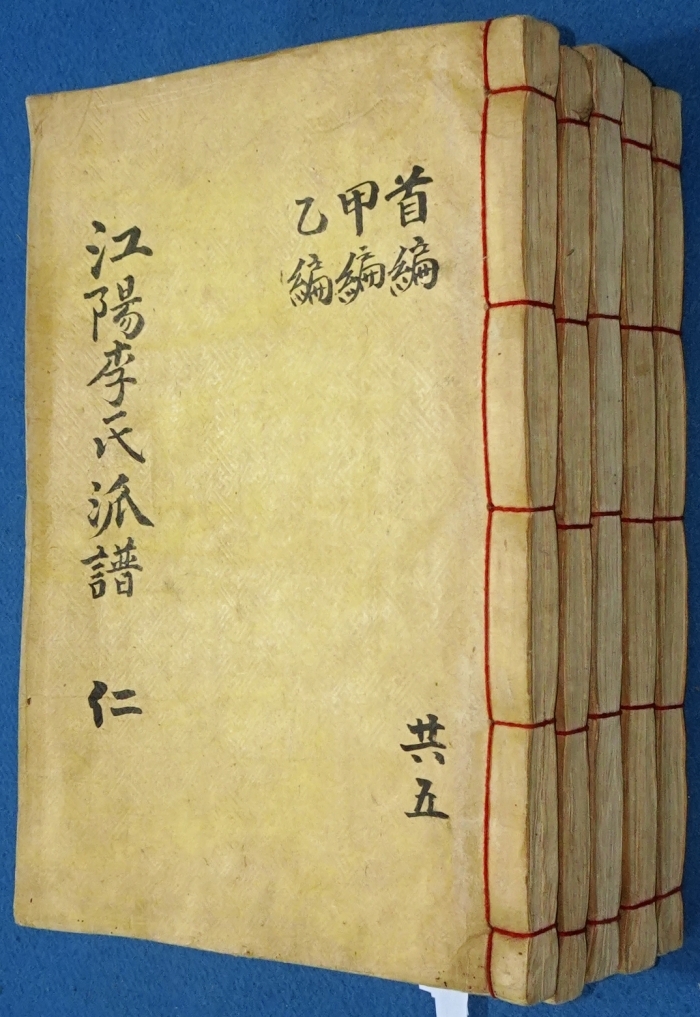 首編
甲編
乙編
共五
江陽李氏派譜 仁